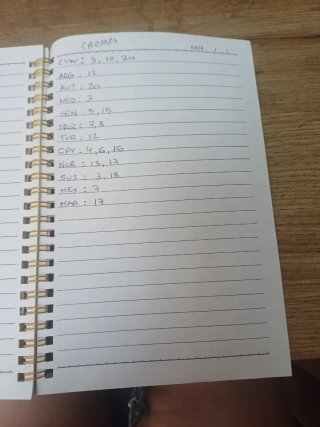 CROMOS
DATE / /
CUW : 3, 10, 20
ARG : 17
AUT : 20
NED : 3
SEN : 9, 15
IRQ : 7, 8
TUR : 12
CPV : 4, 6, 16
NOR : 13, 17
SUI : 3, 18
MEX : 7
MAR : 17